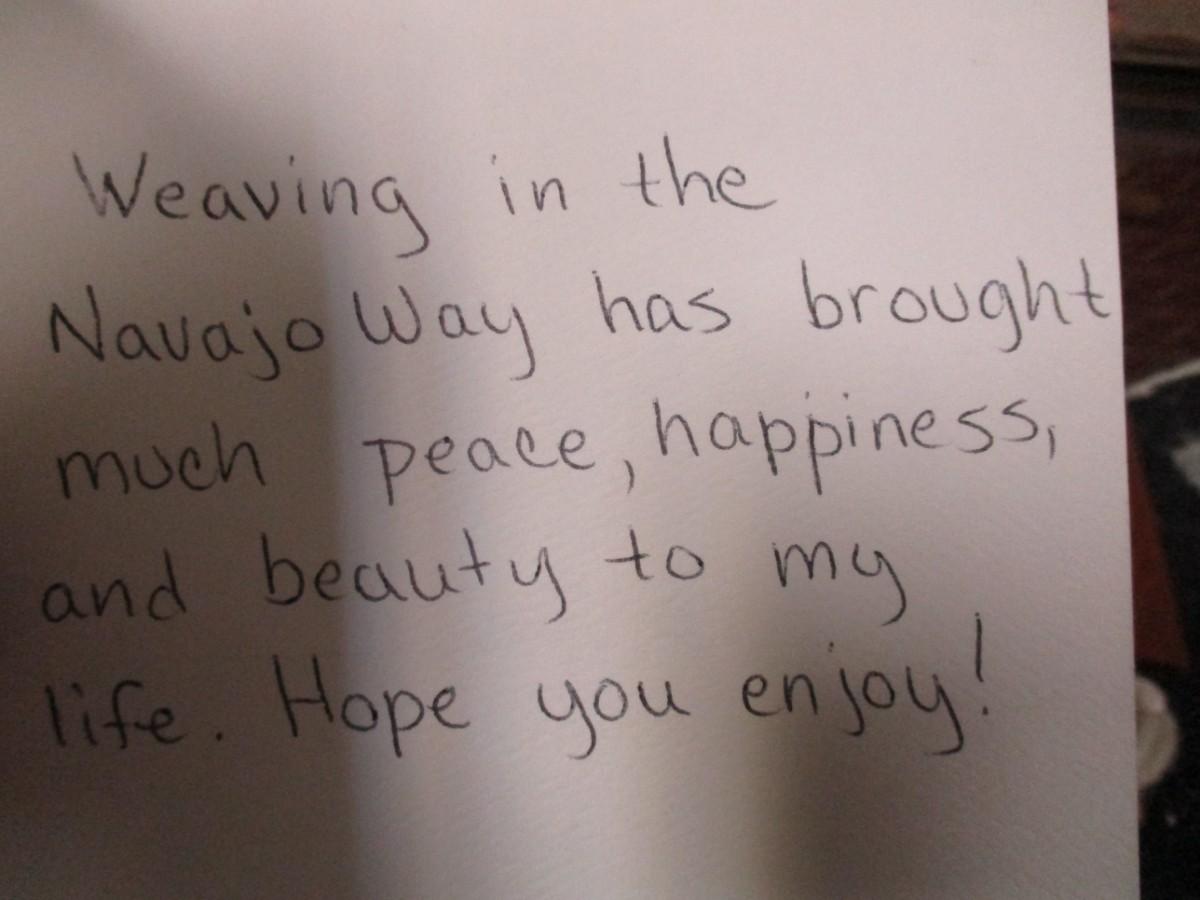 Weaving in the
Navajo Way has brought
much peace, happiness,
and beauty to my
life. Hope you enjoy!